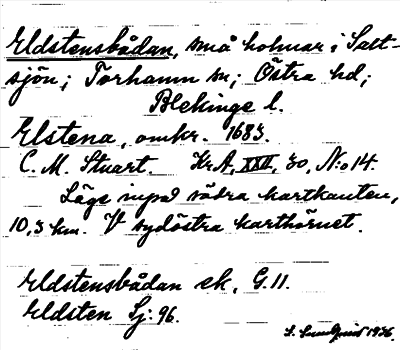 Eldstensbådan, små holmar i Salt-
sjön; Torhamn sn; Östra hd;
Blekinge l.
Elstena, omkr. 1683.
C. M. Stuart. KrA, XXII, 30, N:o 14.
Läge inpå södra kartkanten,
10,3 km. V sydöstra karthörnet.
Eldstensbådan ek. G. 11.
Eldsten Sj: 96.
S. Sundquist 1936.